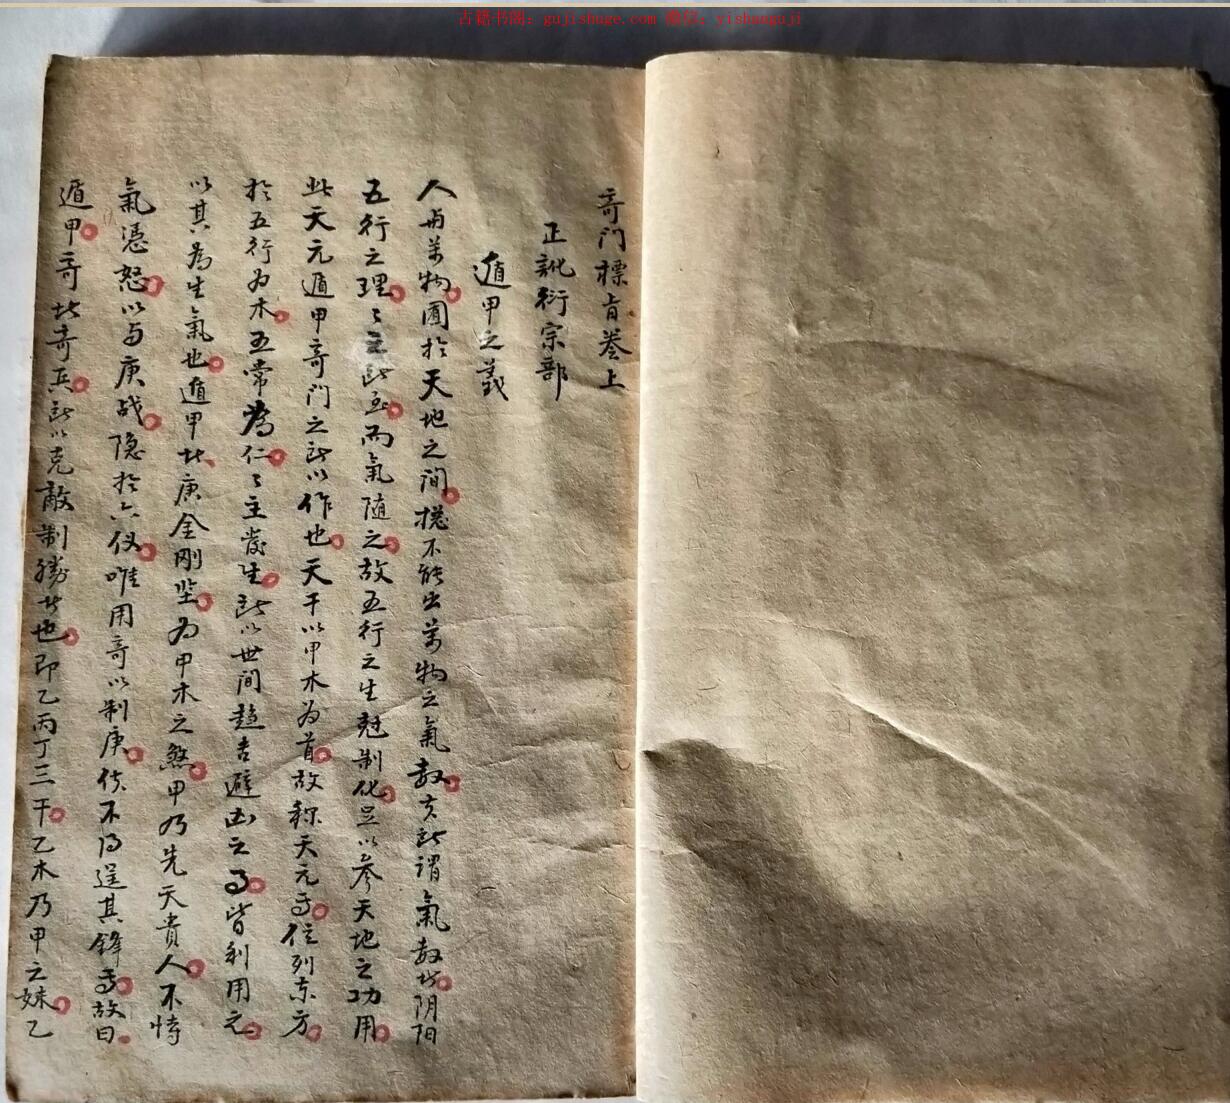 古籍书阁：gujishuge.com 微信：yishuguji
奇门標旨卷上
正訛衍宗部
遁甲之義
人与萬物囿於天地之間摠不能出萬物之氣数夫所謂氣数者阴阳
五行之理〻主所至而氣随之故五行之生尅制化足以参天地之功用
此天元遁甲奇门之所以作也天干以甲木为首故称天元焉位列东方
於五行为木五常為仁〻主發生所以世间趋吉避凶之事皆利用之
以其為生氣也遁甲者庚金刚坚为甲木之煞甲乃先天貴人不恃
氣憑怒以与庚战隐於六仪唯用奇以制庚使不得逞其鋒焉故曰
遁甲奇者奇兵所以克敵制勝者也即乙丙丁三干乙木乃甲之妹乙